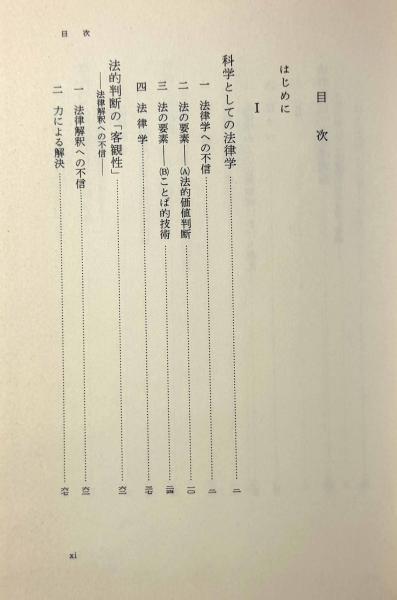 目次
目次
はじめに
I
科学としての法律学 二
一 法律学への不信 二
二 法の要素――(A)法的価値判断 一〇
三 法の要素――(B)ことば的技術 二四
四 法律学
法的判断の「客観性」
――法律解釈への不信――
一 法律解釈への不信
二 力による解決 六七
xi